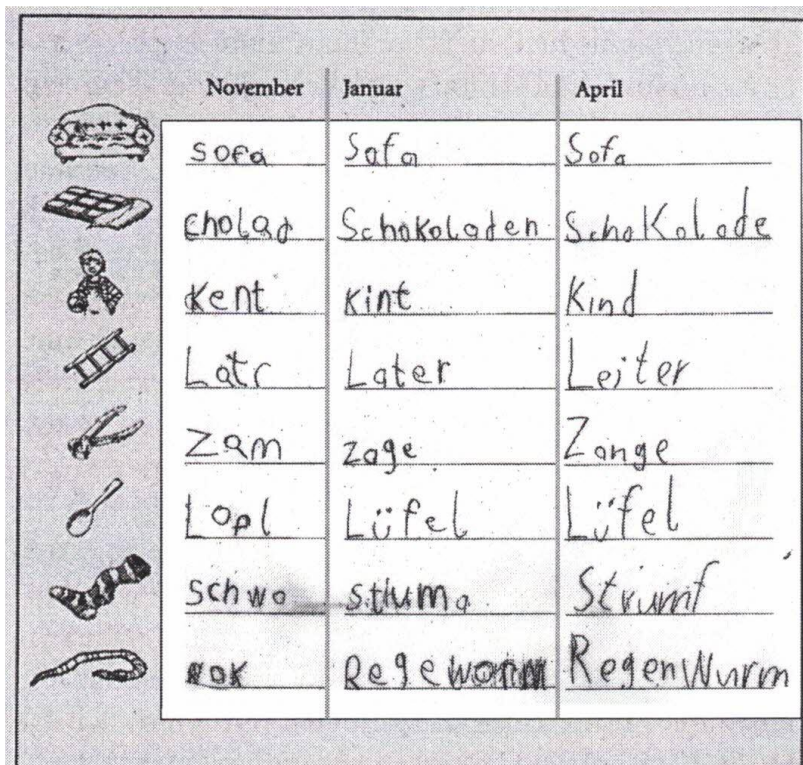 November Januar April
sofa Sofa Sofa
cholad Schokoladen SchoKolade
Kent kint Kind
Latr Later Leiter
Zam zage Zange
Lopl Lüfel Lüfel
schwo Strumf
Regeworm RegenWurm